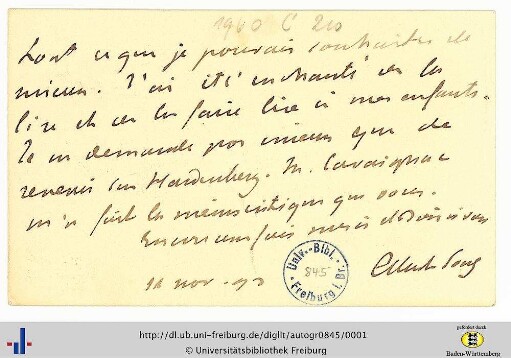 1960 C 210
tout ce que je pouvais souhaiter de
mieux. J'ai été enchanté de la
lire et de la faire lire à mes enfants.
Je ne demande pas mieux que de
revenir sur Hardenberg. M. Cavaignac
m'a fait la même critique que vous.
Encore une fois merci et
11 nov.
Univ.-Bibl.
845
Freiburg i. Br.
http://dl.ub.uni-freiburg.de/diglit/autogr0845/0001
© Universitätsbibliothek Freiburg
gefördert durch
Baden-Württemberg